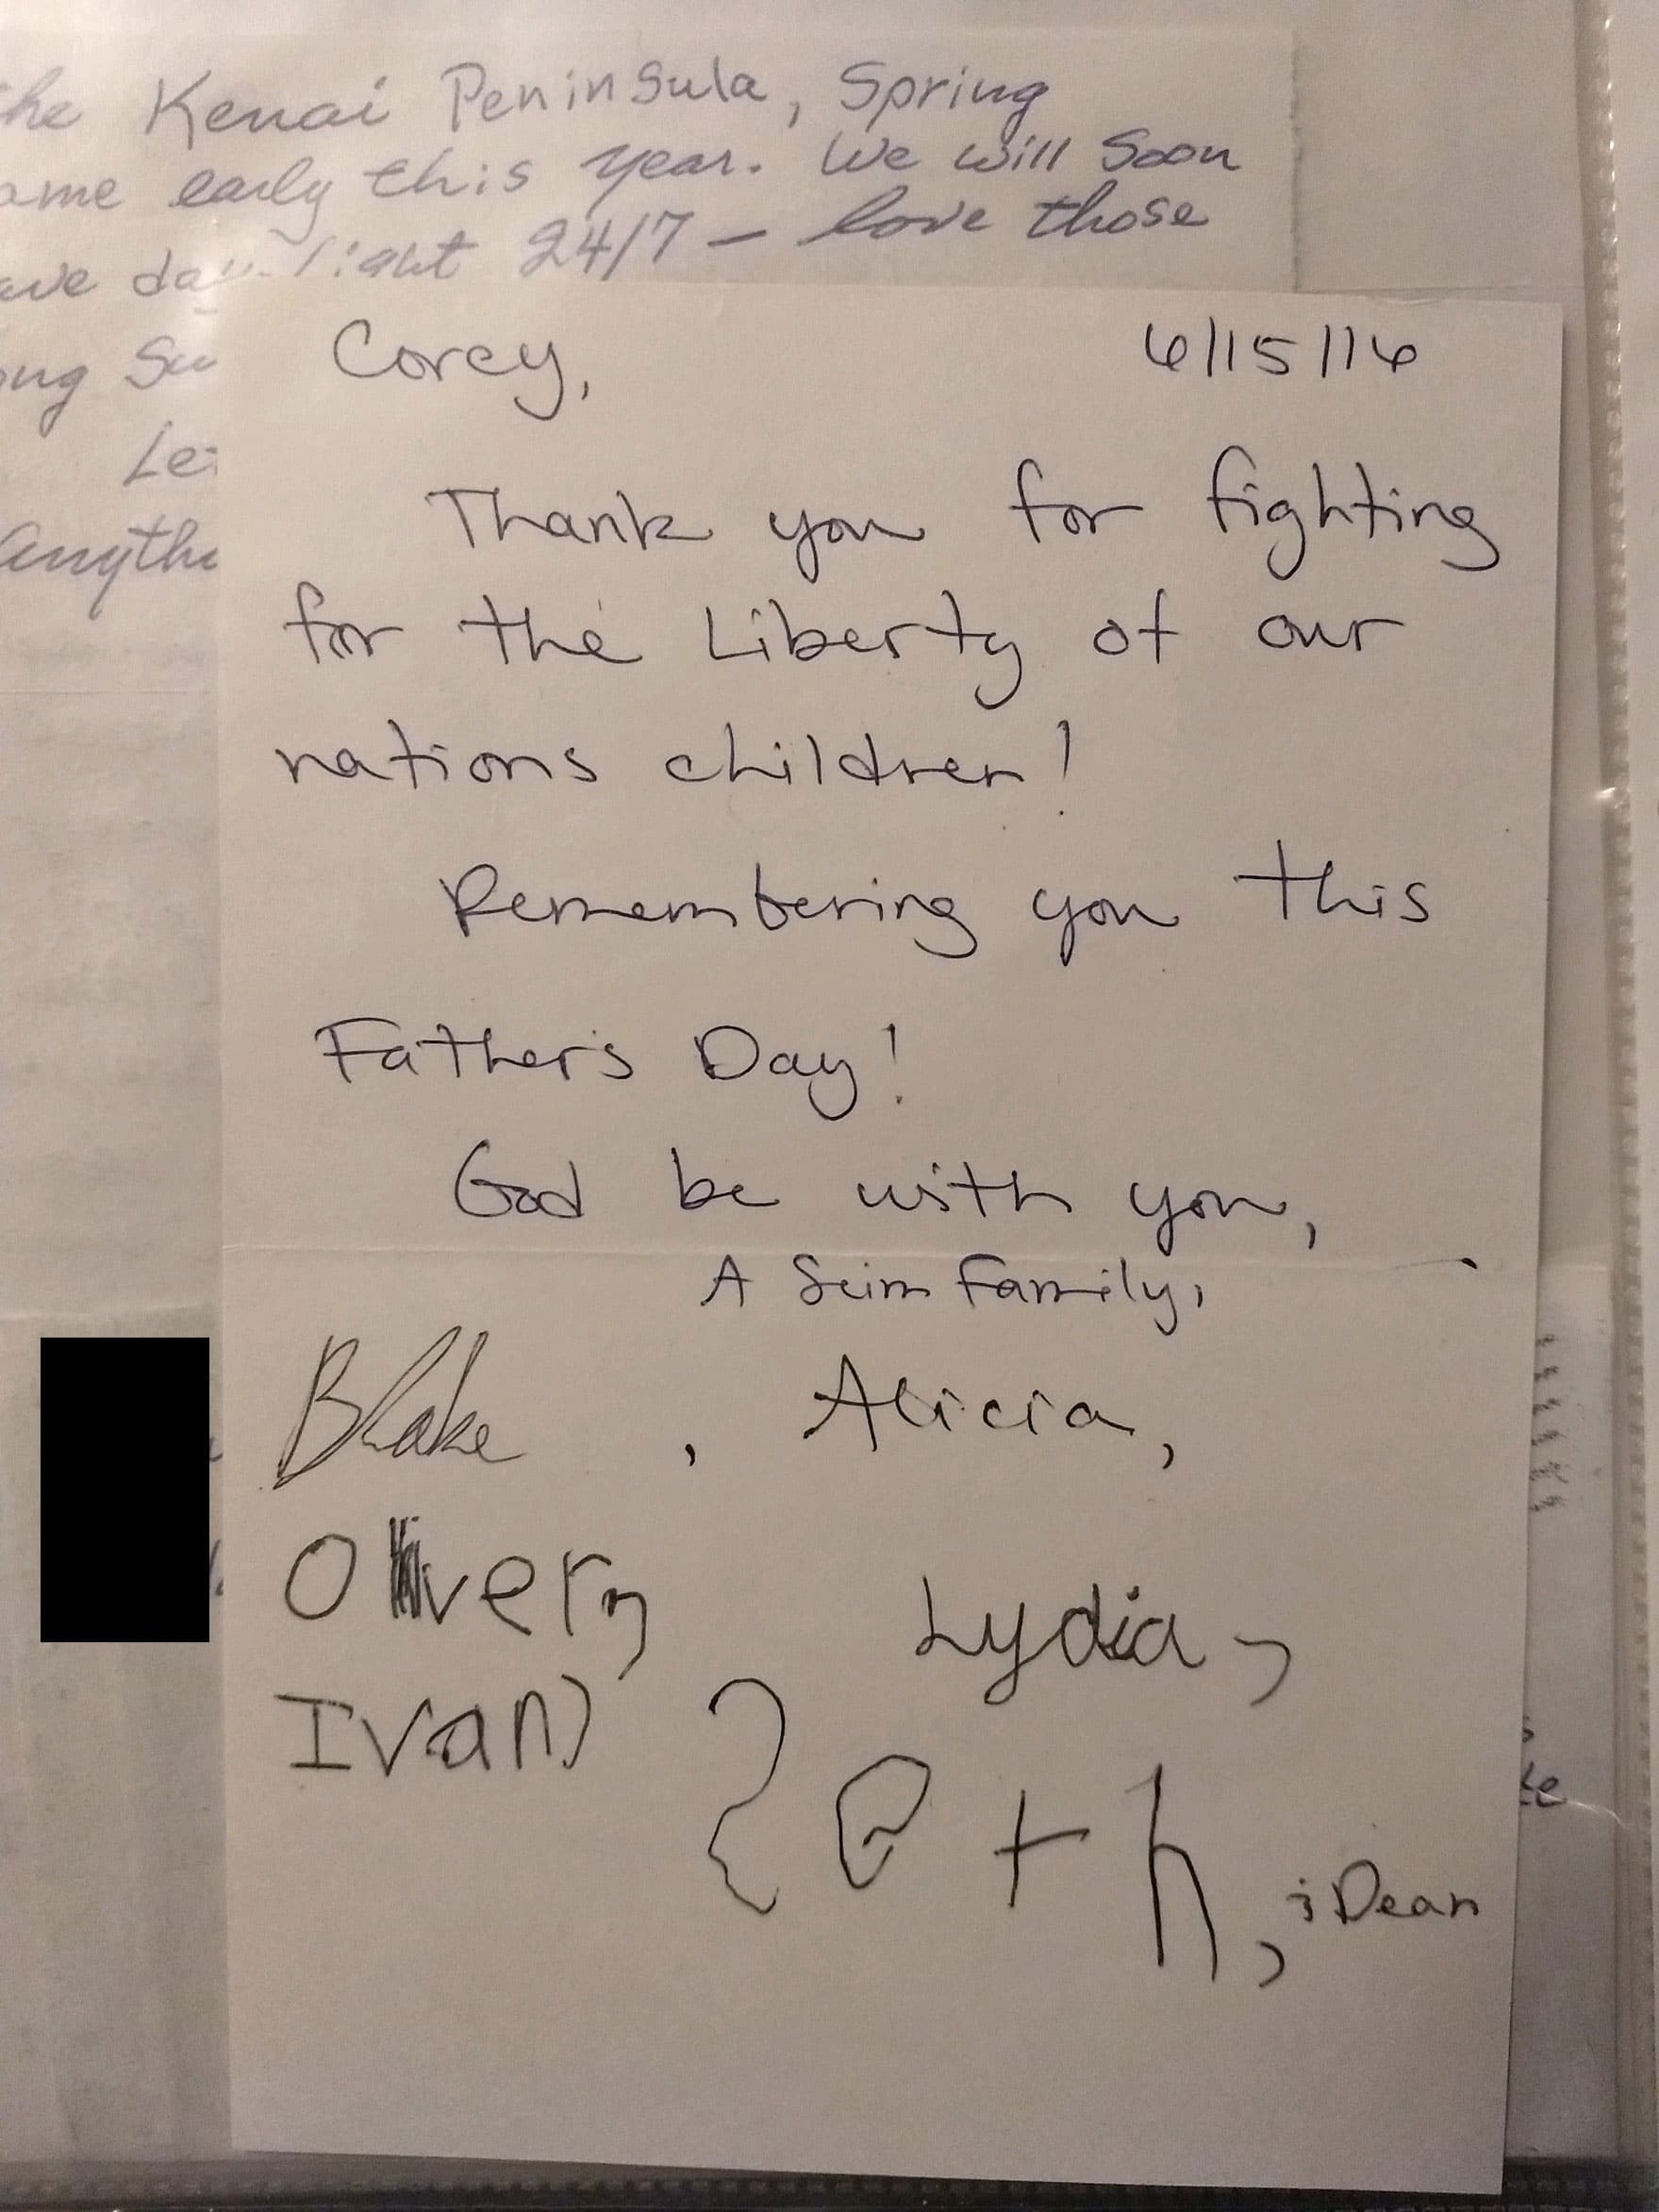 the Kenai Peninsula, Spring
ame early this year. We will soon
ave daylight 24/7 — love those
ong Su
Le
Anythi
Corey,
6/15/16
Thank you for fighting
for the Liberty of our
nations children!
Remembering you this
Father's Day!
God be with you,
A Seim Family,
Blake, Alicia,
Oliver,
Lydia,
Ivan,
Seth,
; Dean